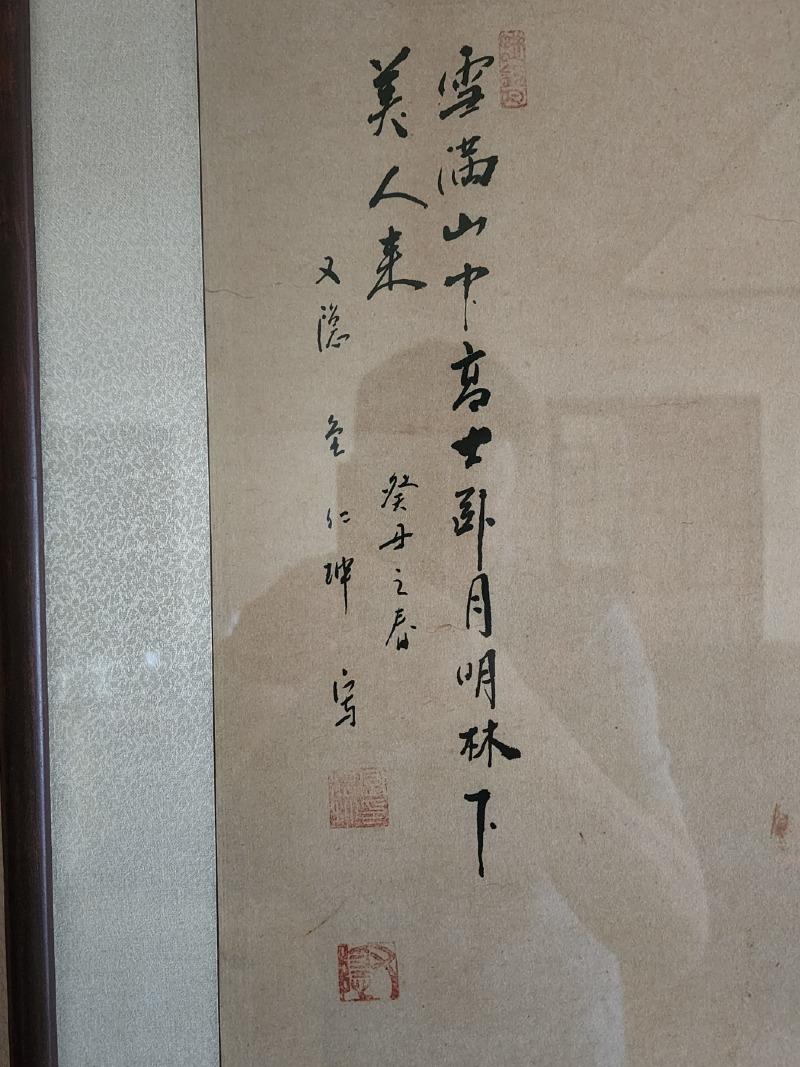 雪滿山中高士卧月明林下
美人来
癸丑之春
又隱 金仁坤 寫